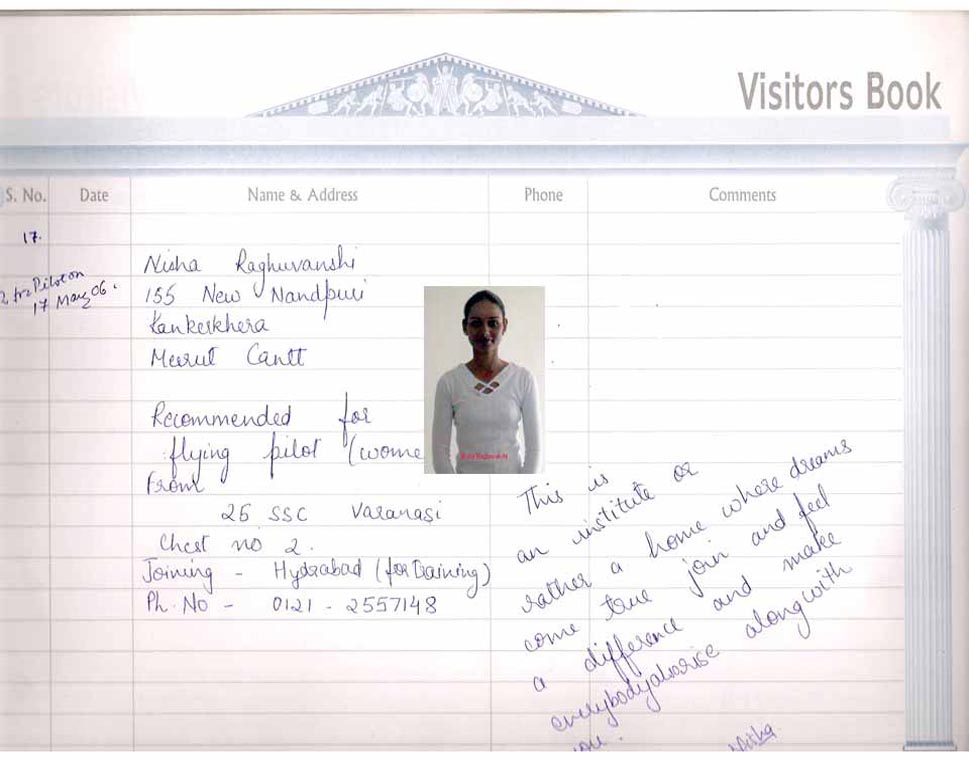 Visitors Book
S. No. Date Name & Address Phone Comments
17.
Pilot on
17 May 06.
Nisha Raghuvanshi
155 New Nandpuri
Kankerkhera
Meerut Cantt
Recommended for
flying pilot (wome
from
25 SSC Varanasi
Chest no 2.
Joining - Hyderabad (for training)
Ph. No - 0121 - 2557148
This is
an institute or
rather a home where dreams
come true join and feel
a difference and make
everybody arise along with
you.
Nisha